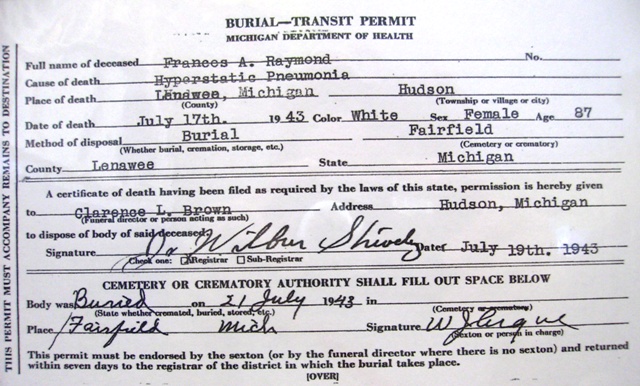 BURIAL—TRANSIT PERMIT
MICHIGAN DEPARTMENT OF HEALTH
Full name of deceased Frances A. Raymond No.
Cause of death Hyperstatic Pneumonia
Place of death Lenawee, Michigan Hudson
(County) (Township or village or city)
Date of death July 17th. 1943 Color White Sex Female Age 87
Method of disposal Burial Fairfield
(Whether burial, cremation, storage, etc.) (Cemetery or crematory)
County Lenawee State Michigan
A certificate of death having been filed as required by the laws of this state, permission is hereby given
to Clarence L. Brown Address Hudson, Michigan
(Funeral director or person acting as such)
to dispose of body of said deceased.
Signature Wilbur Dated July 19th. 1943
Check one: Registrar Sub-Registrar
CEMETERY OR CREMATORY AUTHORITY SHALL FILL OUT SPACE BELOW
Body was Buried on 21 July 1943 in
(State whether cremated, buried, stored, etc.) (Cemetery or crematory)
Place Fairfield Mich Signature
(Sexton or person in charge)
This permit must be endorsed by the sexton (or by the funeral director where there is no sexton) and returned
within seven days to the registrar of the district in which the burial takes place.
[OVER]
THIS PERMIT MUST ACCOMPANY REMAINS TO DESTINATION